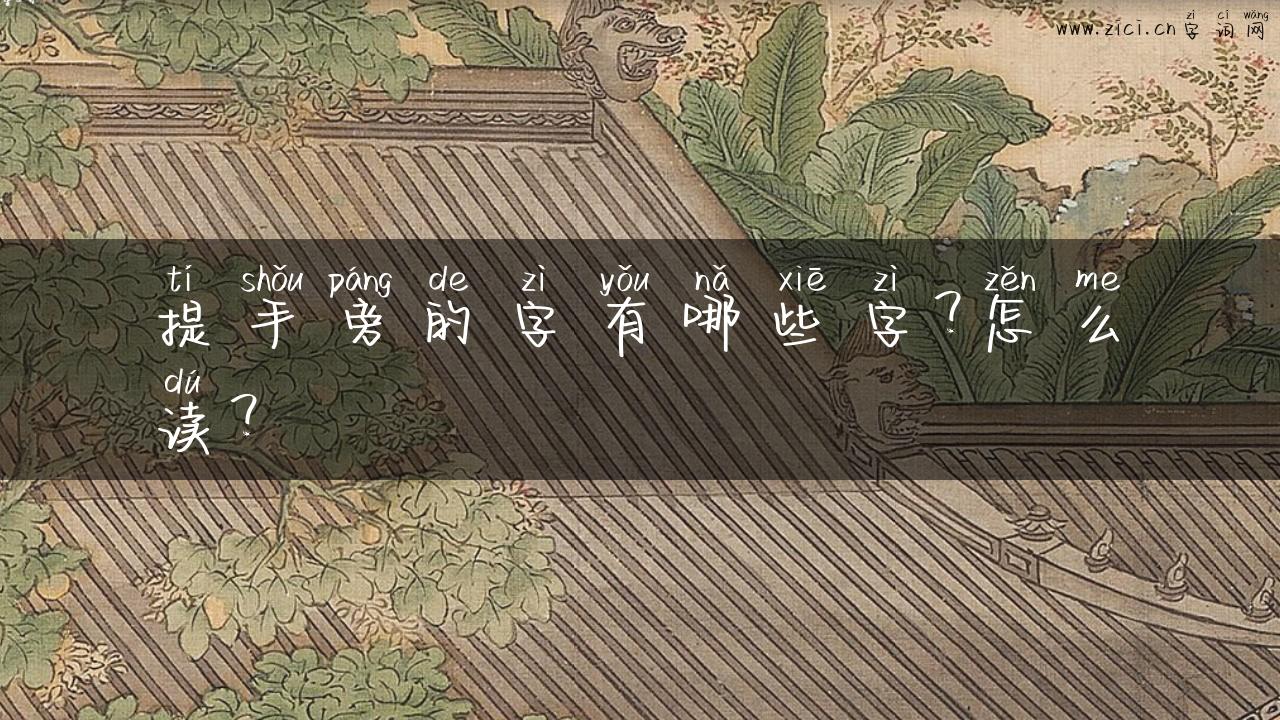 zì cí wǎng
www.zici.cn 字词网
tí shǒu páng de zì yǒu nǎ xiē zì zěn me
提手旁的字有哪些字?怎么
dú
读?